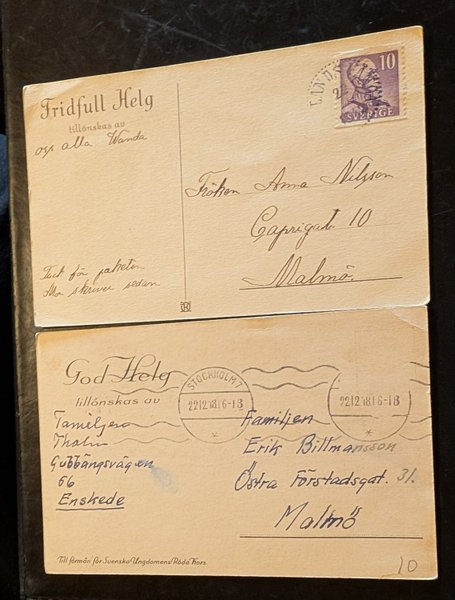 Fridfull Helg
tillönskas av
oss alla Wanda
Tack för paketen
Mor skriver sedan
10
SVERIGE
Fröken Anna Nilsson
Caprigat. 10
Malmö.
God Helg
tillönskas av
Familjen
Tholin
Gubbängsvägen
66
Enskede
Till förmån för Svenska Ungdomens Röda Kors
STOCKHOLM 7
22 12 48 16-18
22 12 48 16-18
Familjen
Erik Bittmansson
Östra Förstadsgat. 31.
Malmö
10